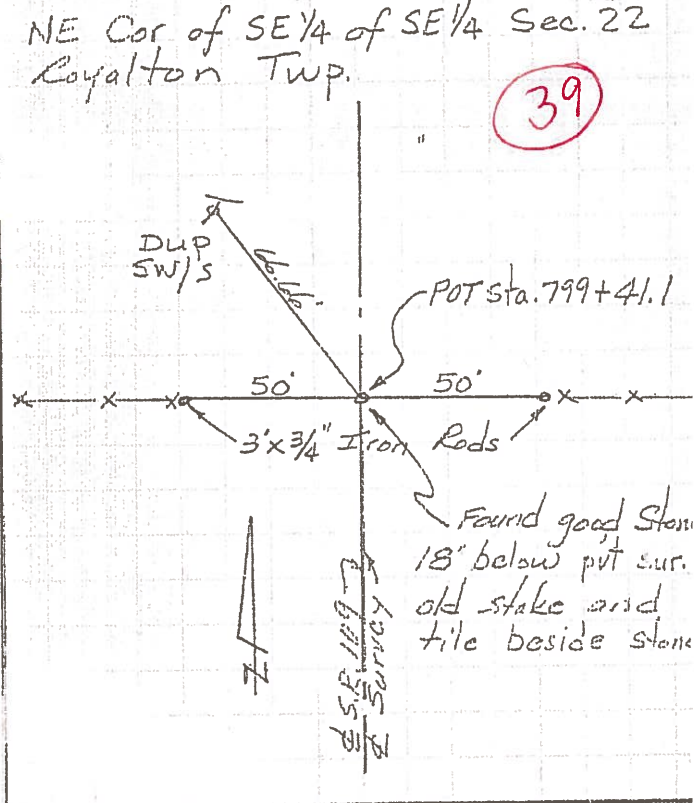 NE Cor of SE 1/4 of SE 1/4 Sec. 22
Royalton Twp.
39
Dup
SW/S
66.66'
POT Sta. 799+41.1
50'
50'
3'x3/4" Iron Rods
Found good Stone
18" below pvt sur.
old stake and
tile beside stone
N
℄ S.R. 109
℄ Survey